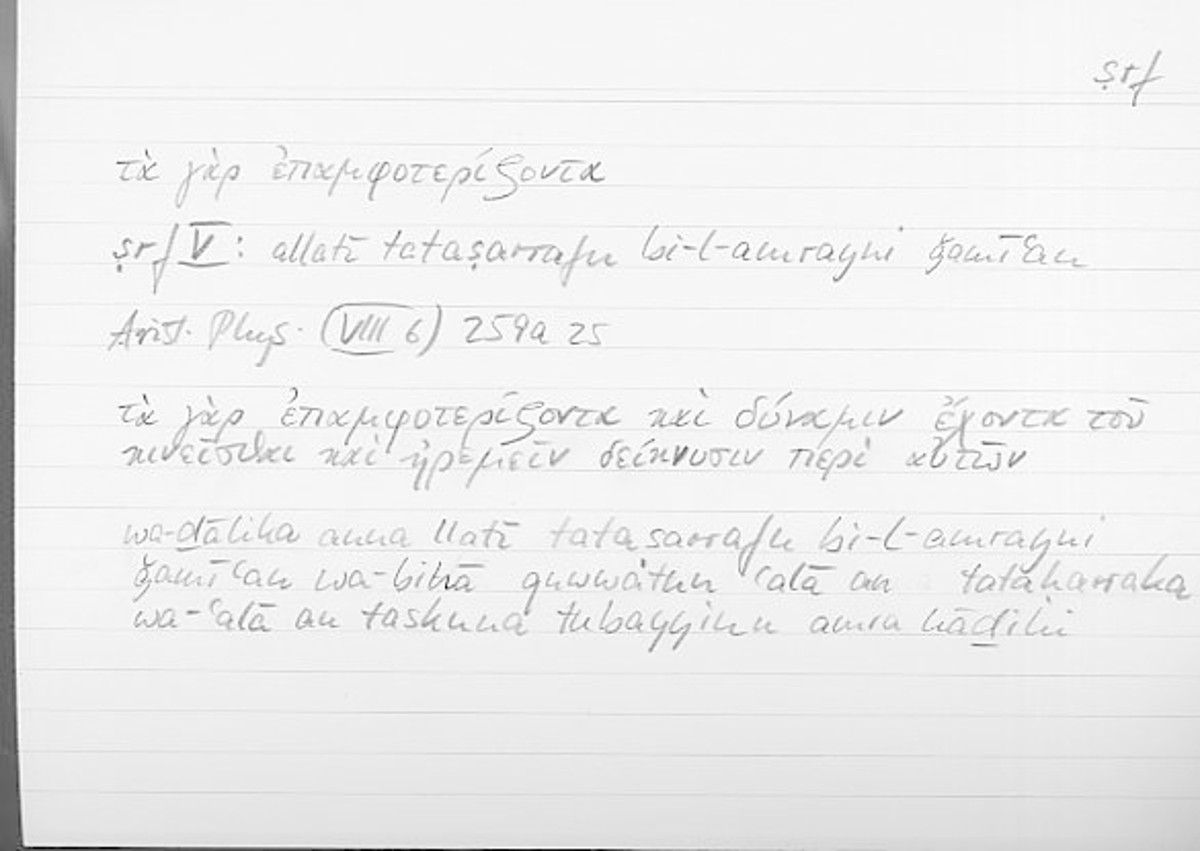 ṣrf
τὰ γὰρ ἐπαμφοτερίζοντα
ṣrf V: allatī tataṣarrafu bi-l-amrayni ǧamīʿan
Arist. Phys. (VIII 6) 259a 25
τὰ γὰρ ἐπαμφοτερίζοντα καὶ δύναμιν ἔχοντα τοῦ
κινεῖσθαι καὶ ἠρεμεῖν δείκνυσιν περὶ αὐτῶν
wa-ḏālika anna llatī tataṣarrafu bi-l-amrayni
ǧamīʿan wa-bihā quwwatun ʿalā an tataḥarraka
wa-ʿalā an taskuna tubayyinu amra hāḏihi